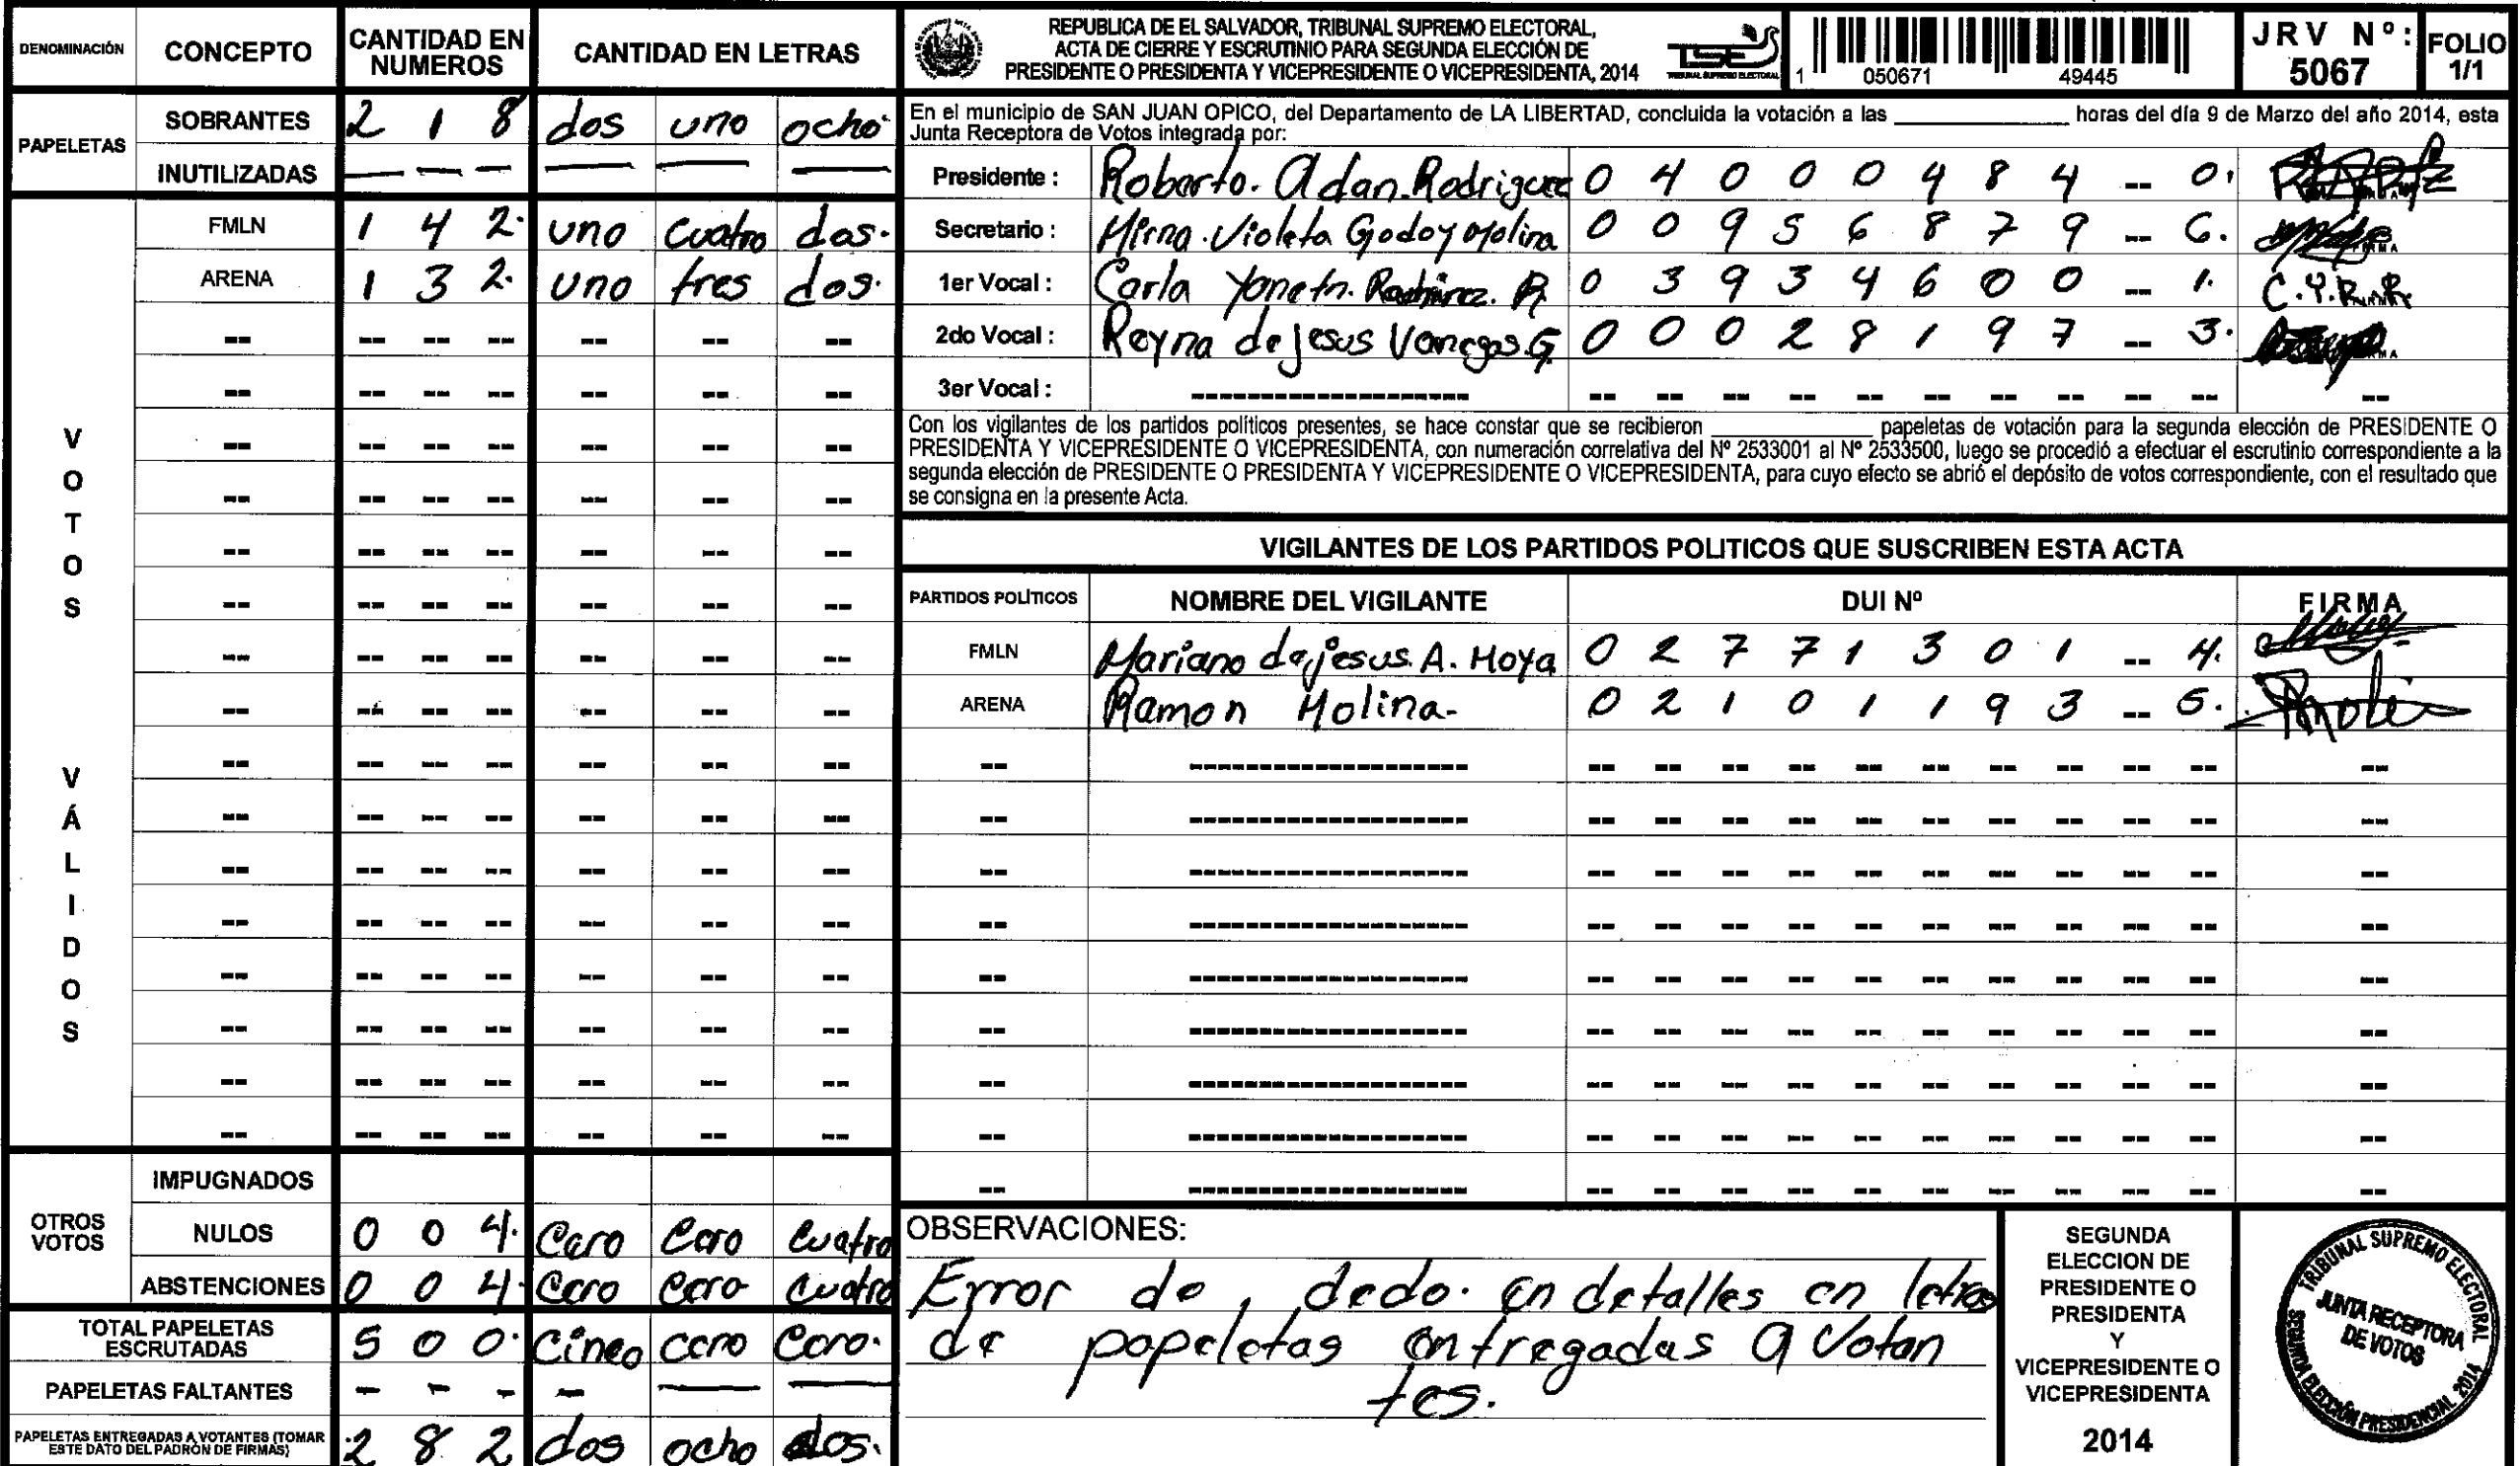 DENOMINACIÓN CONCEPTO CANTIDAD EN NUMEROS CANTIDAD EN LETRAS
PAPELETAS
SOBRANTES 2 1 8 dos uno ocho
INUTILIZADAS — — — — — —
VOTOS VÁLIDOS
FMLN 1 4 2. uno cuatro dos.
ARENA 1 3 2. uno tres dos.
OTROS VOTOS
IMPUGNADOS
NULOS 0 0 4. Cero Cero Cuatro
ABSTENCIONES 0 0 4. Cero Cero Cuatro
TOTAL PAPELETAS ESCRUTADAS 5 0 0. Cinco cero Cero.
PAPELETAS FALTANTES - - - — — —
PAPELETAS ENTREGADAS A VOTANTES (TOMAR ESTE DATO DEL PADRÓN DE FIRMAS) 2 8 2 dos ocho dos.
REPUBLICA DE EL SALVADOR, TRIBUNAL SUPREMO ELECTORAL,
ACTA DE CIERRE Y ESCRUTINIO PARA SEGUNDA ELECCIÓN DE
PRESIDENTE O PRESIDENTA Y VICEPRESIDENTE O VICEPRESIDENTA, 2014
TSE
TRIBUNAL SUPREMO ELECTORAL
1 050671 49445
JRV Nº: 5067
FOLIO 1/1
En el municipio de SAN JUAN OPICO, del Departamento de LA LIBERTAD, concluida la votación a las ____________ horas del día 9 de Marzo del año 2014, esta
Junta Receptora de Votos integrada por:
Presidente : Roberto. Adan. Rodriguez 0 4 0 0 0 4 8 4 -- 0.
Secretario : Mirna. Violeta Godoy Molina 0 0 9 5 6 8 7 9 -- 6.
1er Vocal : Carla Yaneth. Ramirez. R 0 3 9 3 4 6 0 0 -- 1. C.Y.R.R
2do Vocal : Reyna de jesus Vanegas. G 0 0 0 2 8 1 9 7 -- 3.
3er Vocal :
Con los vigilantes de los partidos políticos presentes, se hace constar que se recibieron ____________ papeletas de votación para la segunda elección de PRESIDENTE O
PRESIDENTA Y VICEPRESIDENTE O VICEPRESIDENTA, con numeración correlativa del Nº 2533001 al Nº 2533500, luego se procedió a efectuar el escrutinio correspondiente a la
segunda elección de PRESIDENTE O PRESIDENTA Y VICEPRESIDENTE O VICEPRESIDENTA, para cuyo efecto se abrió el depósito de votos correspondiente, con el resultado que
se consigna en la presente Acta.
VIGILANTES DE LOS PARTIDOS POLITICOS QUE SUSCRIBEN ESTA ACTA
PARTIDOS POLÍTICOS NOMBRE DEL VIGILANTE DUI Nº FIRMA
FMLN Mariano de jesus. A. Moya 0 2 7 7 1 3 0 1 -- 4.
ARENA Ramon Molina- 0 2 1 0 1 1 9 3 -- 5.
OBSERVACIONES:
Error de, dedo. en detalles en letras
de papeletas entregadas a Votan
tes.
SEGUNDA
ELECCION DE
PRESIDENTE O
PRESIDENTA
Y
VICEPRESIDENTE O
VICEPRESIDENTA
2014
TRIBUNAL SUPREMO ELECTORAL
JUNTA RECEPTORA
DE VOTOS
SEGUNDA ELECCIÓN PRESIDENCIAL 2014